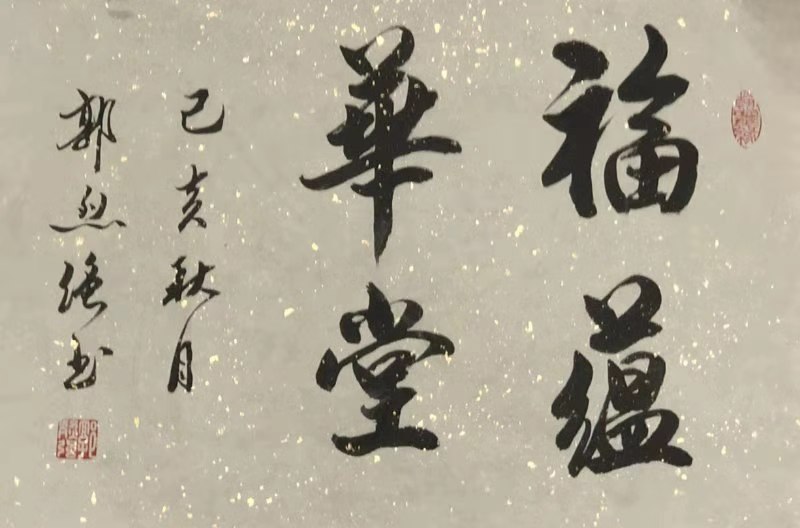 福蕴
華堂
己亥秋月
郭烈强书